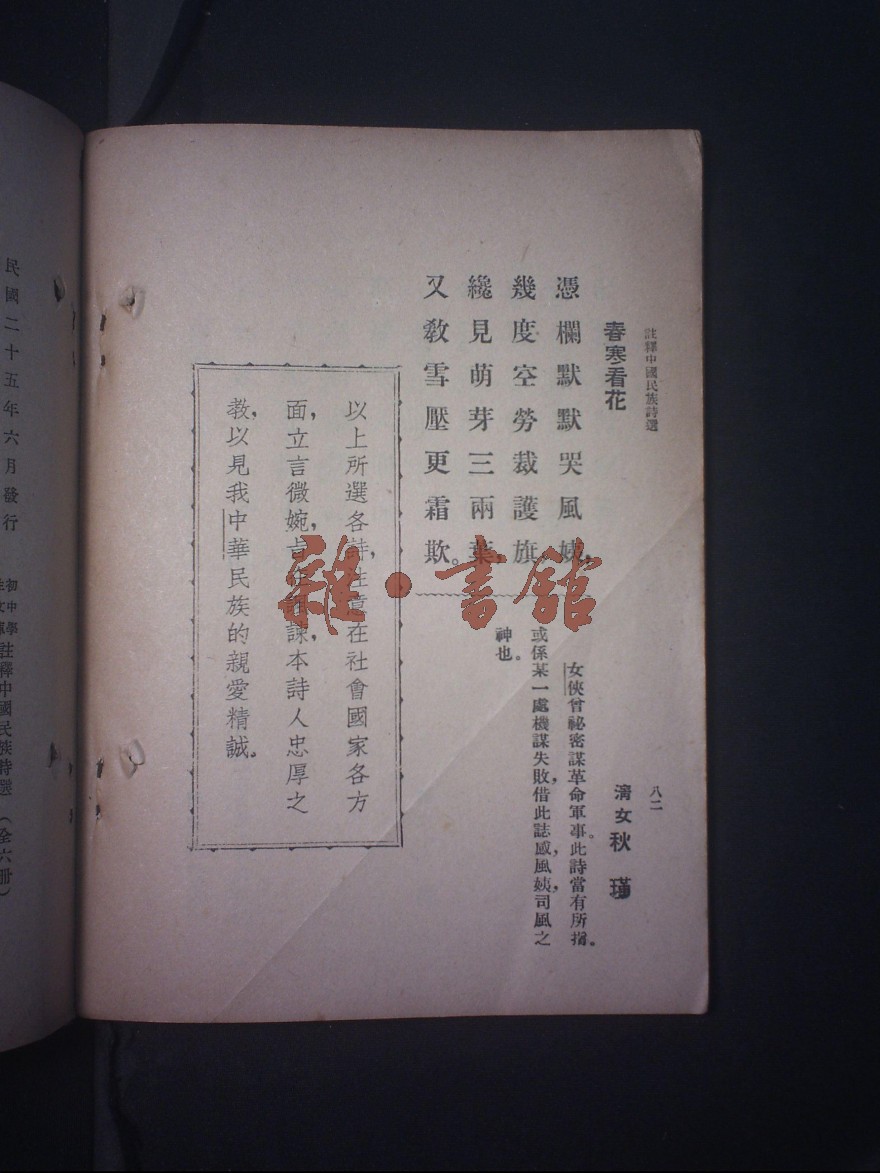 註釋中國民族詩選
八二
春寒看花
清女秋瑾
憑欄默默哭風姨，
幾度空勞裁護旗
纔見萌芽三兩葉
又教雪壓更霜欺。
女俠曾祕密謀革命軍事。此詩當有所指。
或係某一處機謀失敗，借此誌感，風姨，司風之
神也。
以上所選各詩，注意在社會國家各方
面，立言微婉，本詩人忠厚之
教，以見我中華民族的親愛精誠。
雜·書館
民國二十五年六月發行
初中學
註釋中國民族詩選（全六冊）